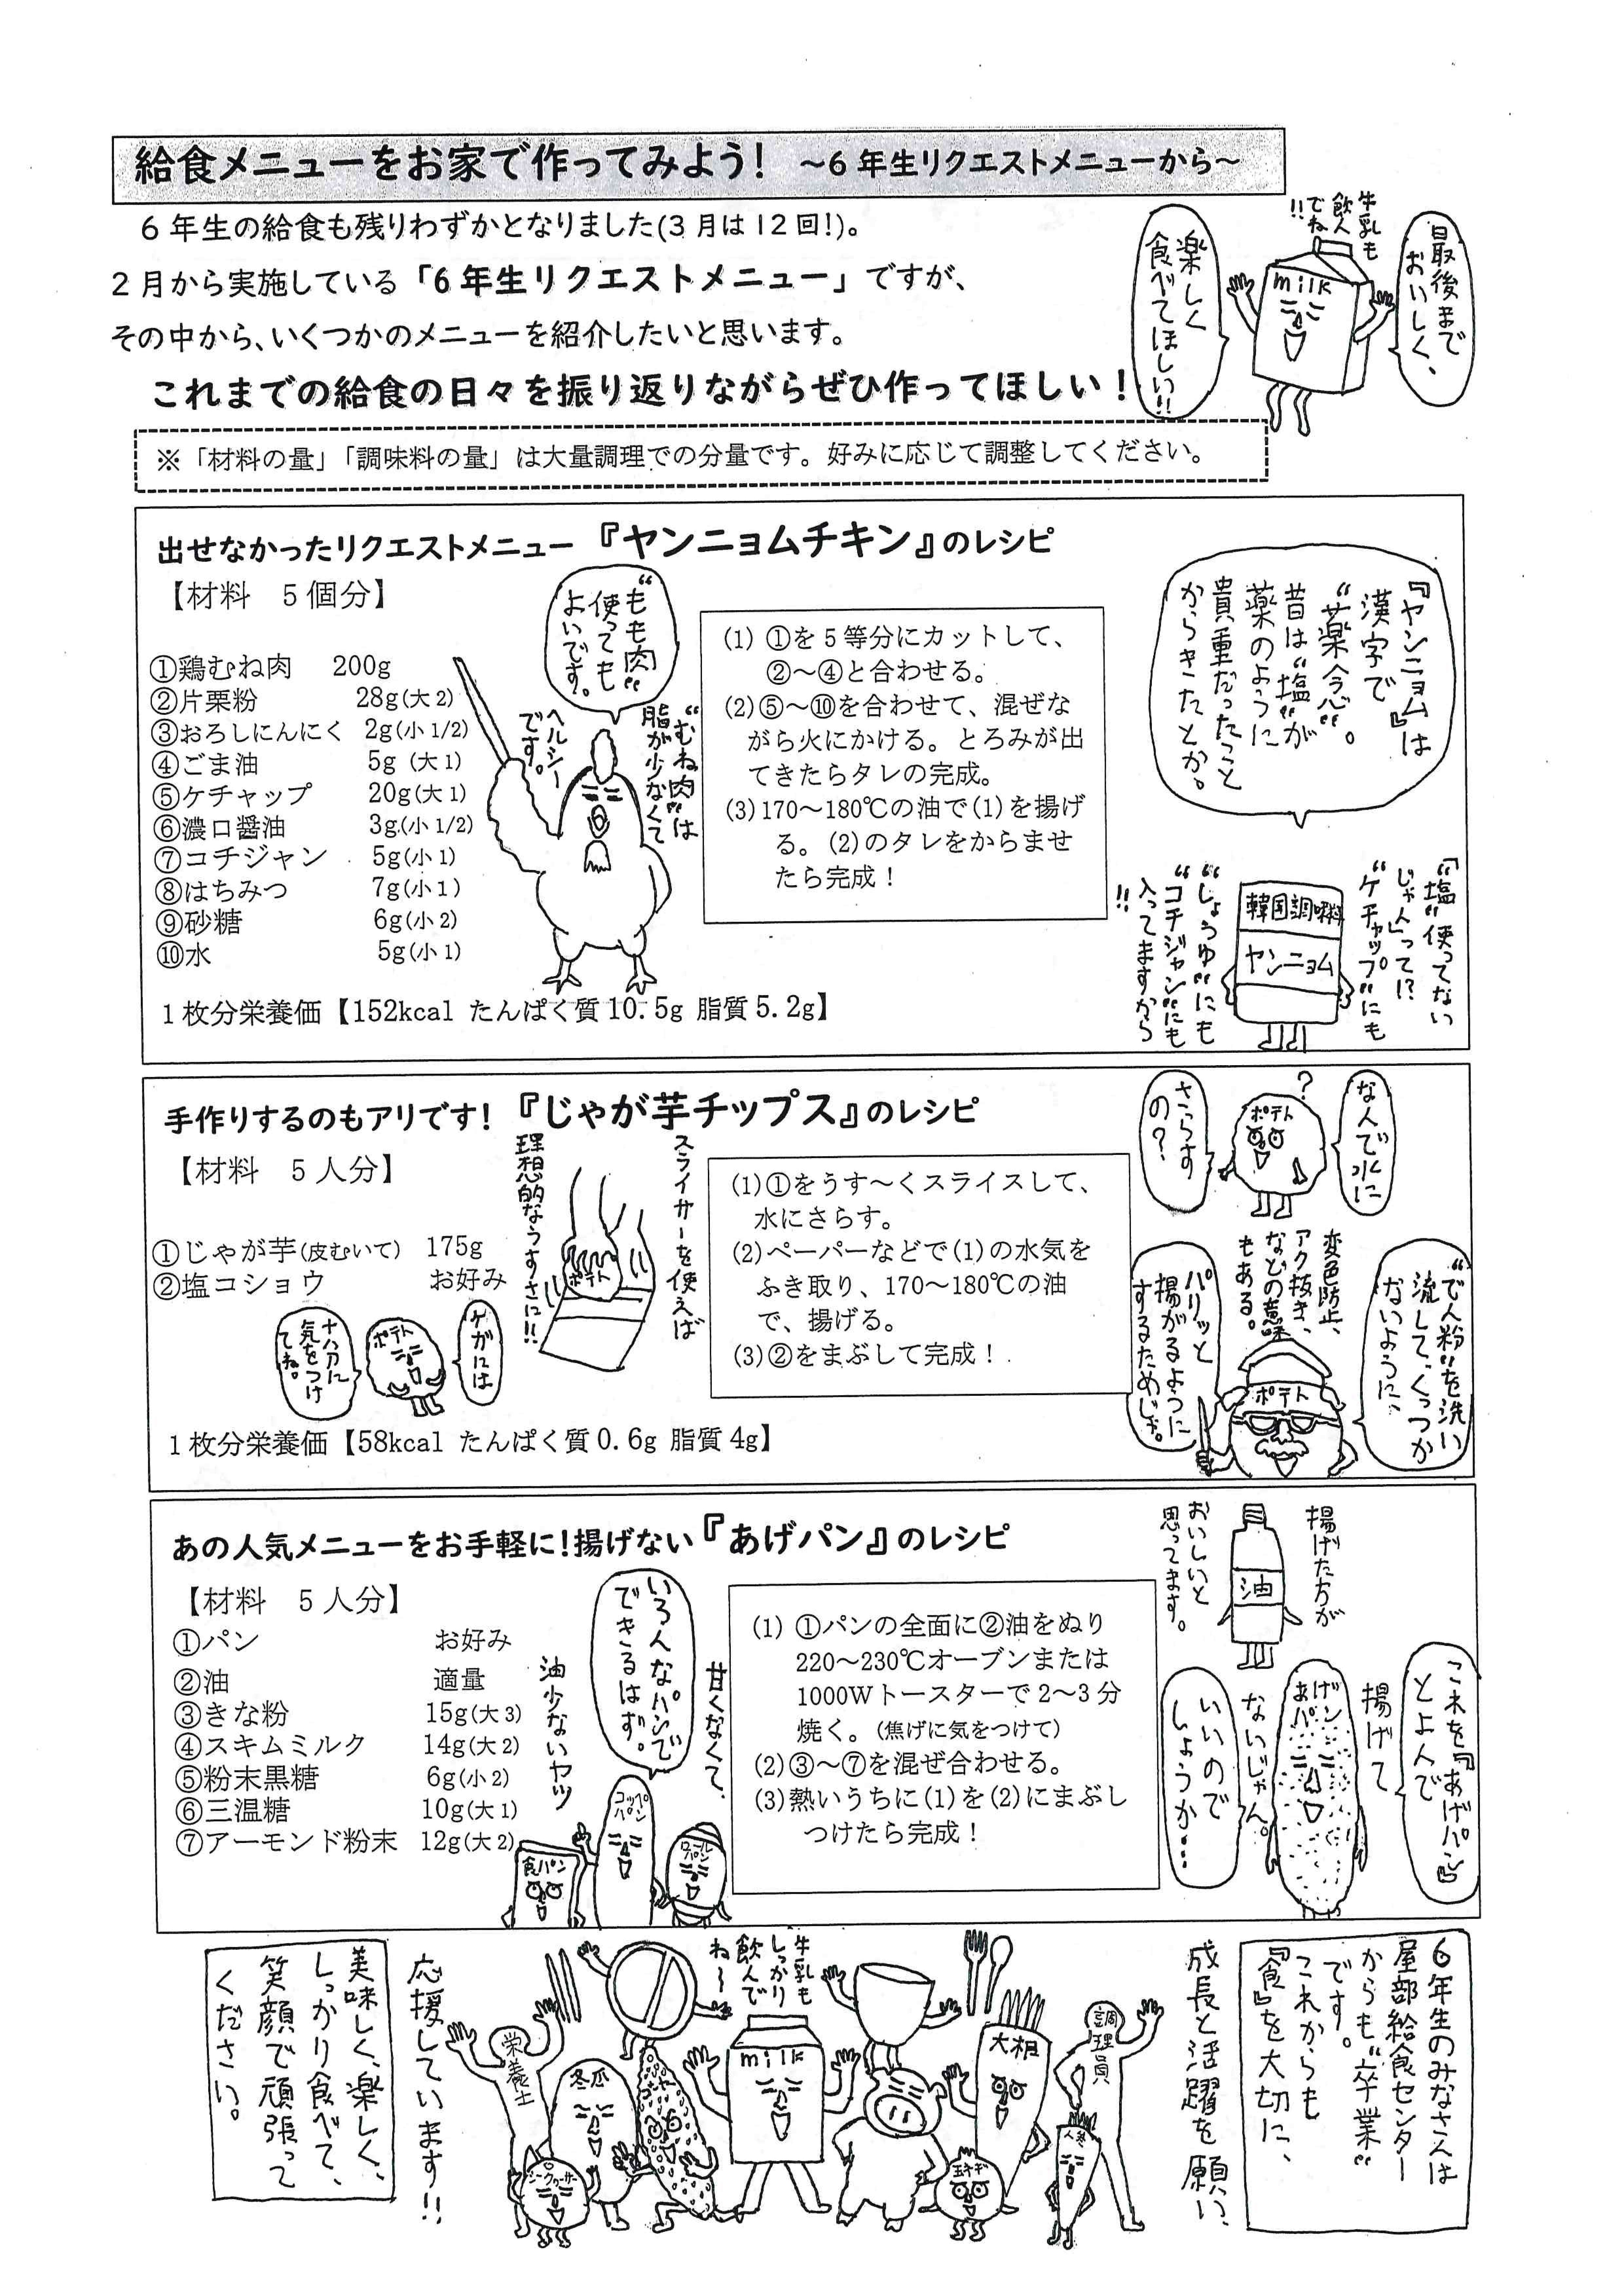 給食メニューをお家で作ってみよう! ～6年生リクエストメニューから～
6年生の給食も残りわずかとなりました(3月は12回!)。
2月から実施している「6年生リクエストメニュー」ですが、
その中から、いくつかのメニューを紹介したいと思います。
これまでの給食の日々を振り返りながらぜひ作ってほしい!
最後まで
おいしく、
牛乳も
飲んでね
!!
milk
楽しく
食べてほしい!!
※「材料の量」「調味料の量」は大量調理での分量です。好みに応じて調整してください。
出せなかったリクエストメニュー『ヤンニョムチキン』のレシピ
【材料 5個分】
①鶏むね肉 200g
②片栗粉 28g(大2)
③おろしにんにく 2g(小1/2)
④ごま油 5g (大1)
⑤ケチャップ 20g(大1)
⑥濃口醤油 3g(小1/2)
⑦コチジャン 5g(小1)
⑧はちみつ 7g(小1)
⑨砂糖 6g(小2)
⑩水 5g(小1)
1枚分栄養価【152kcal たんぱく質10.5g 脂質5.2g】
“もも肉”
使っても
よいです。
“むね肉”は
脂が少なくて
ヘルシー
です。
(1) ①を5等分にカットして、
②～④と合わせる。
(2)⑤～⑩を合わせて、混ぜな
がら火にかける。とろみが出
てきたらタレの完成。
(3)170～180℃の油で(1)を揚げ
る。(2)のタレをからませ
たら完成!
『ヤンニョム』は
漢字で
“薬念”。
昔は“塩”が
薬のように
貴重だったこと
からきたとか。
「“塩”使ってない
じゃん」って!?
“ケチャップ”にも
韓国調味料
ヤンニョム
“しょうゆ”にも
“コチジャン”にも
入ってますから
!!
手作りするのもアリです!『じゃが芋チップス』のレシピ
【材料 5人分】
①じゃが芋(皮むいて) 175g
②塩コショウ お好み
スライサーを使えば
理想的なうすさに!!
ポテト
ケガには
ポテト
十分に
気をつけ
てね。
1枚分栄養価【58kcal たんぱく質0.6g 脂質4g】
(1)①をうす～くスライスして、
水にさらす。
(2)ペーパーなどで(1)の水気を
ふき取り、170～180℃の油
で、揚げる。
(3)②をまぶして完成!
なんで水に
?
ポテト
さらす
の?
“でん粉”を洗い
流して、くっつか
ないように、
変色防止、
アク抜き、
などの意味
もある。
ポテト
パリッと
揚がるように
するためじゃ。
あの人気メニューをお手軽に!揚げない『あげパン』のレシピ
【材料 5人分】
①パン お好み
②油 適量
③きな粉 15g(大3)
④スキムミルク 14g(大2)
⑤粉末黒糖 6g(小2)
⑥三温糖 10g(大1)
⑦アーモンド粉末 12g(大2)
いろんなパンで
できるはず。
甘くなくて、
油少ないヤツ
食パン
コッペパン
ロールパン
(1) ①パンの全面に②油をぬり
220～230℃オーブンまたは
1000Wトースターで2～3分
焼く。(焦げに気をつけて)
(2)③～⑦を混ぜ合わせる。
(3)熱いうちに(1)を(2)にまぶし
つけたら完成!
揚げた方が
油
おいしいと
思ってます。
これを『あげパン』
とよんで
揚げて
ないじゃん。
あげパン
いいので
しょうか…
6年生のみなさんは
屋部給食センター
からも“卒業”
です。
これからも
『食』を大切に、
成長と活躍を願い、
調理員
大根
人参
玉ネギ
牛乳も
しっかり
飲んで
ね～
milk
ゴーヤー
冬瓜
シークヮーサー
栄養士
応援しています!!
美味しく、楽しく、
しっかり食べて、
笑顔で頑張って
ください。